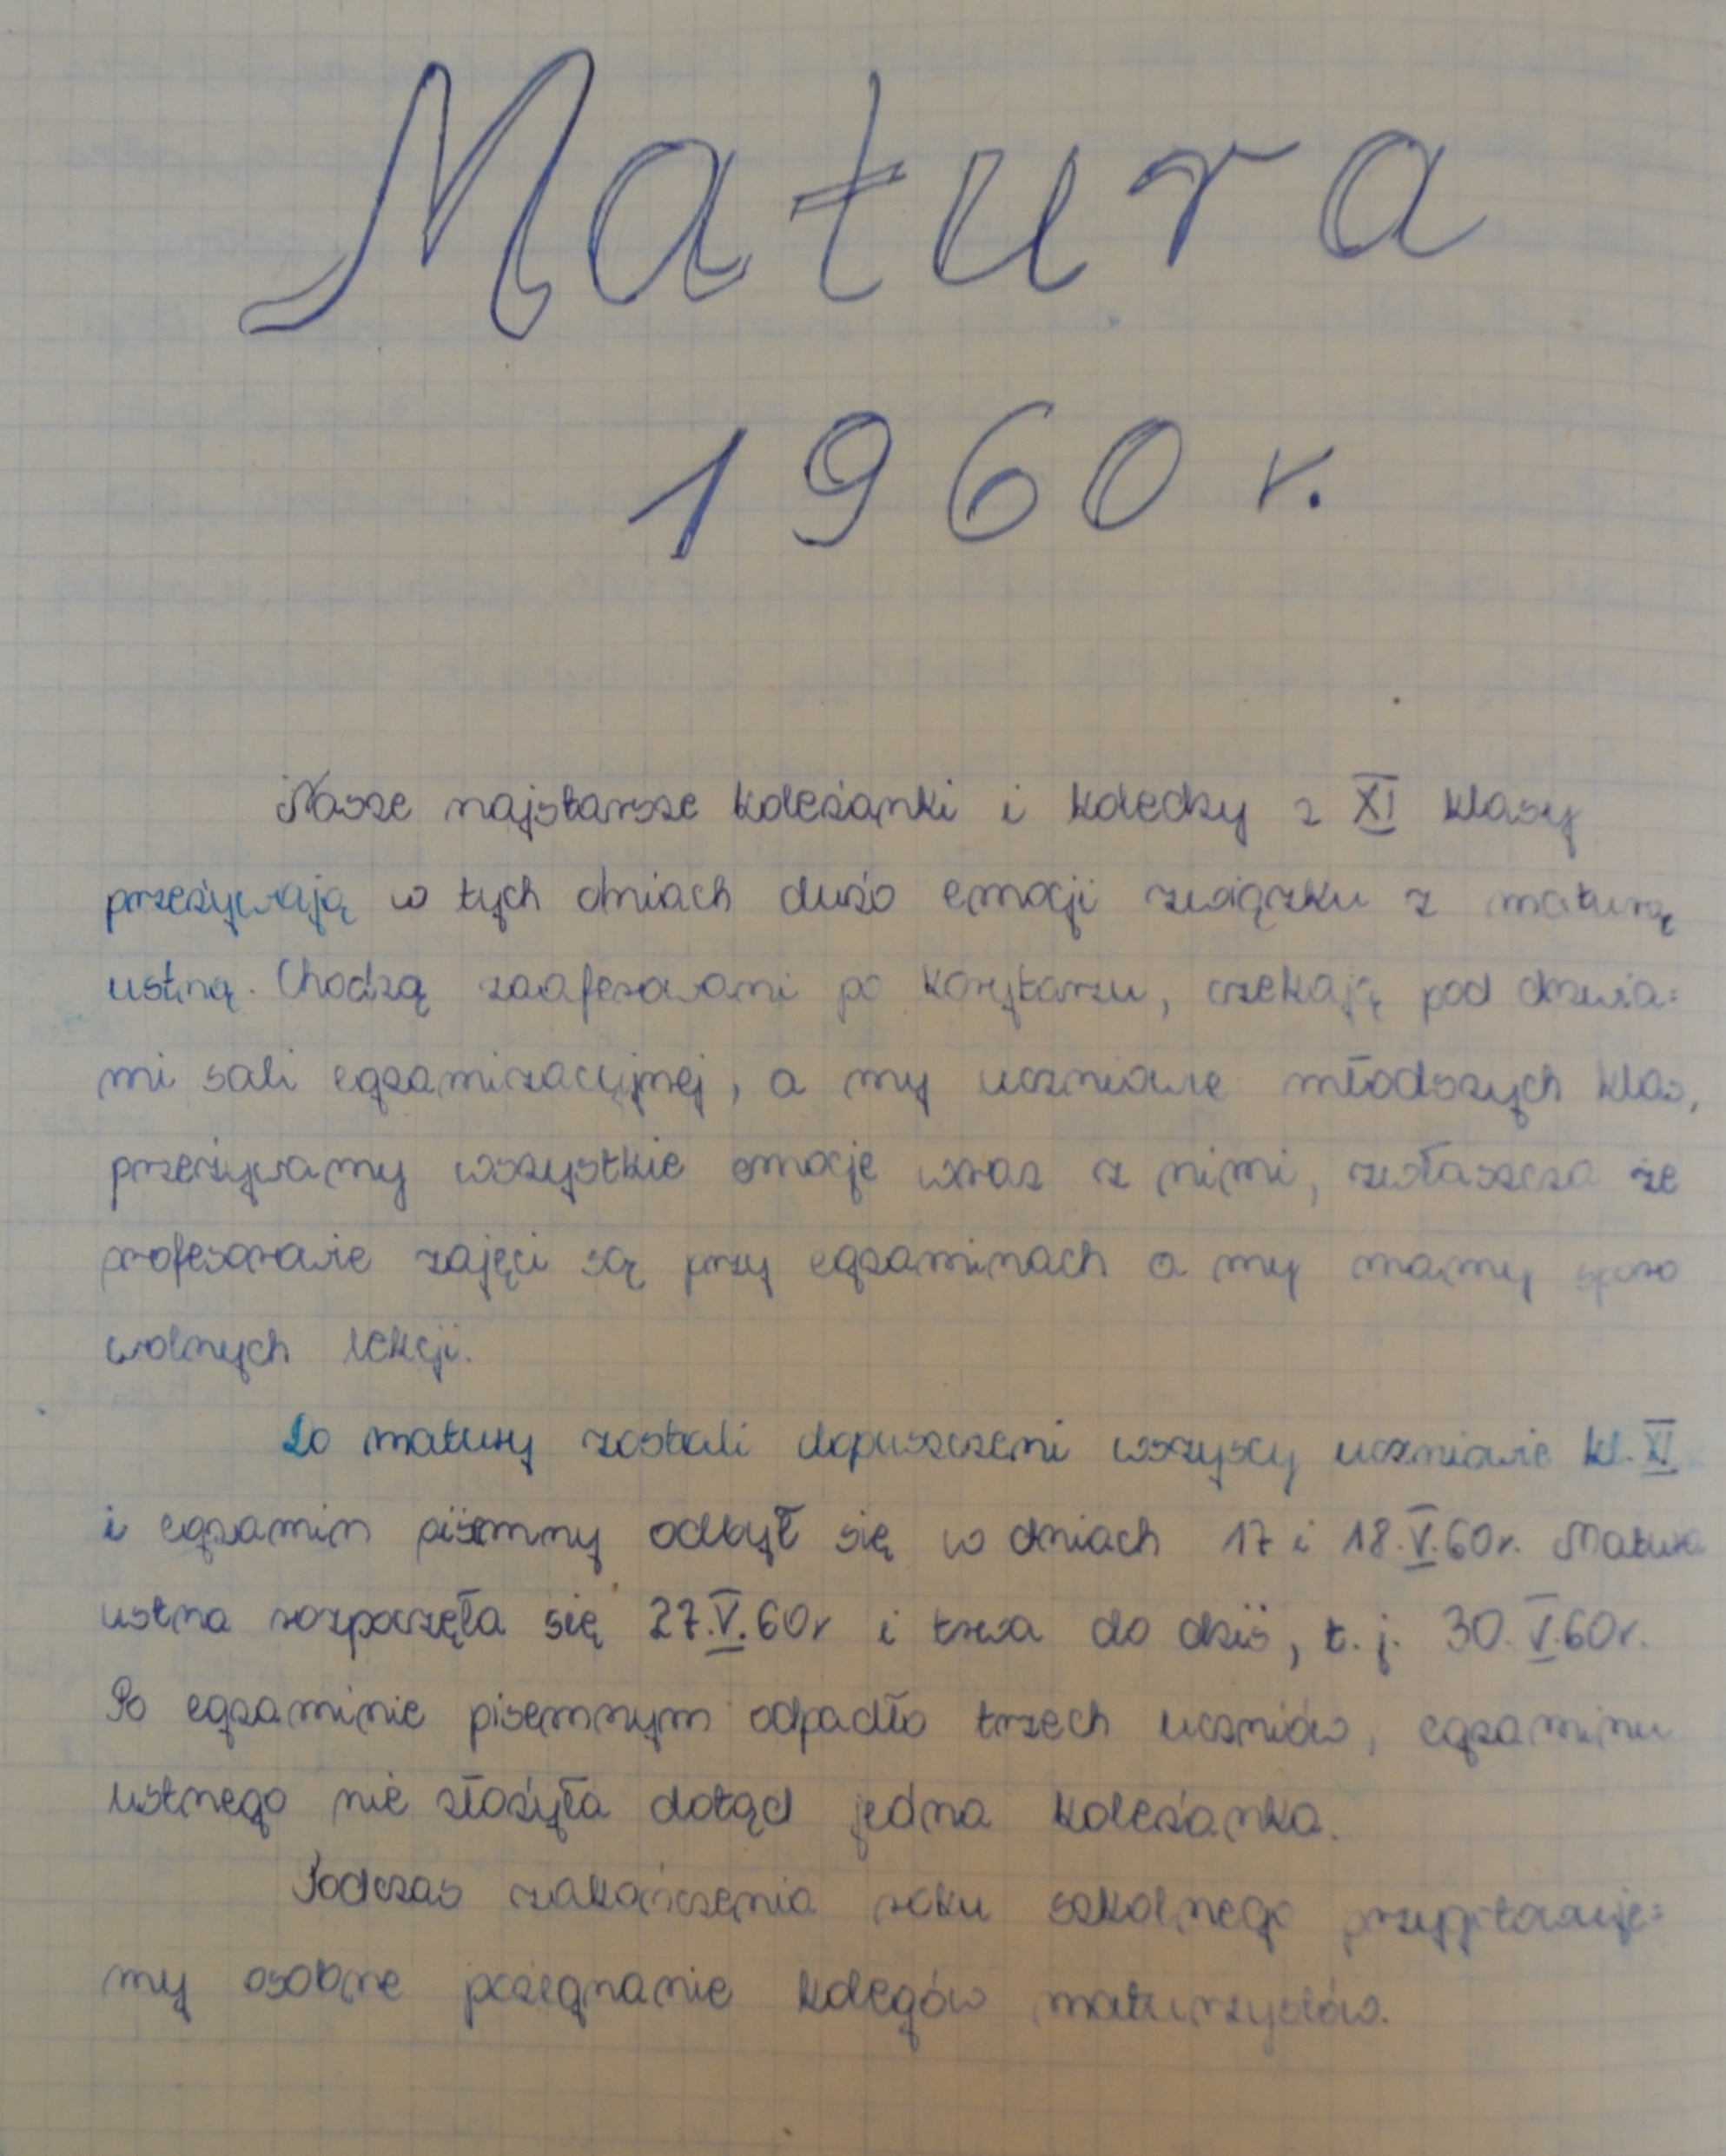 Matura
1960 r.
Nasze najstarsze koleżanki i koledzy z XI klasy
przeżywają w tych dniach dużo emocji związku z maturą
ustną. Chodzą zaaferowani po korytarzu, czekają pod drzwia=
mi sali egzamizacyjnej, a my uczniowie młodszych klas,
przeżywamy wszystkie emocje wraz z nimi, zwłaszcza że
profesorowie zajęci są przy egzaminach a my mamy sporo
wolnych lekcji.
Do matury zostali dopuszczeni wszyscy uczniowie kl. XI
i egzamin pisemny odbył się w dniach 17 i 18.V.60r. Matura
ustna rozpoczęła się 27.V.60r i trwa do dziś, t. j. 30.V.60r.
Po egzaminie pisemnym odpadło trzech uczniów, egzaminu
ustnego nie złożyła dotąd jedna koleżanka.
Podczas zakończenia roku szkolnego przygotowuje=
my osobne pożegnanie kolegów maturzystów.